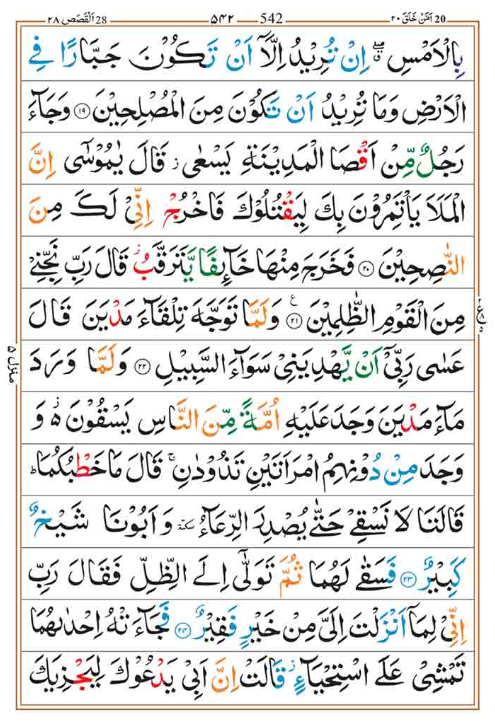 20 اَمَّنْ خَلَقَ ٢٠ 542 ۵۴۲ 28 اَلْقَصَص ٢٨
بِالْاَمْسِ ۖۗ اِنْ تُرِيْدُ اِلَّاۤ اَنْ تَكُوْنَ جَبَّارًا فِي
الْاَرْضِ وَمَا تُرِيْدُ اَنْ تَكُوْنَ مِنَ الْمُصْلِحِيْنَ ﴿۱۹﴾ وَجَآءَ
رَجُلٌ مِّنْ اَقْصَا الْمَدِيْنَةِ يَسْعٰى ؗ قَالَ يٰمُوْسٰۤى اِنَّ
الْمَلَاَ يَاْتَمِرُوْنَ بِكَ لِيَقْتُلُوْكَ فَاخْرُجْ اِنِّيْ لَكَ مِنَ
النّٰصِحِيْنَ ﴿۲۰﴾ فَخَرَجَ مِنْهَا خَآئِفًا يَّتَرَقَّبُ ؗ قَالَ رَبِّ نَجِّنِيْ
مِنَ الْقَوْمِ الظّٰلِمِيْنَ ﴿۲۱﴾ ع وَلَمَّا تَوَجَّهَ تِلْقَآءَ مَدْيَنَ قَالَ
عَسٰى رَبِّيْۤ اَنْ يَّهْدِيَنِيْ سَوَآءَ السَّبِيْلِ ﴿۲۲﴾ وَلَمَّا وَرَدَ
مَآءَ مَدْيَنَ وَجَدَ عَلَيْهِ اُمَّةً مِّنَ النَّاسِ يَسْقُوْنَ ۬ وَ
وَجَدَ مِنْ دُوْنِهِمُ امْرَاَتَيْنِ تَذُوْدٰنِ ۚ قَالَ مَا خَطْبُكُمَا ؕ
قَالَتَا لَا نَسْقِيْ حَتّٰى يُصْدِرَ الرِّعَآءُ ٚ وَاَبُوْنَا شَيْخٌ
كَبِيْرٌ ﴿۲۳﴾ فَسَقٰى لَهُمَا ثُمَّ تَوَلّٰۤى اِلَى الظِّلِّ فَقَالَ رَبِّ
اِنِّيْ لِمَاۤ اَنْزَلْتَ اِلَيَّ مِنْ خَيْرٍ فَقِيْرٌ ﴿۲۴﴾ فَجَآءَتْهُ اِحْدٰىهُمَا
تَمْشِيْ عَلَى اسْتِحْيَآءٍ ؗ قَالَتْ اِنَّ اَبِيْ يَدْعُوْكَ لِيَجْزِيَكَ
منزل ۵